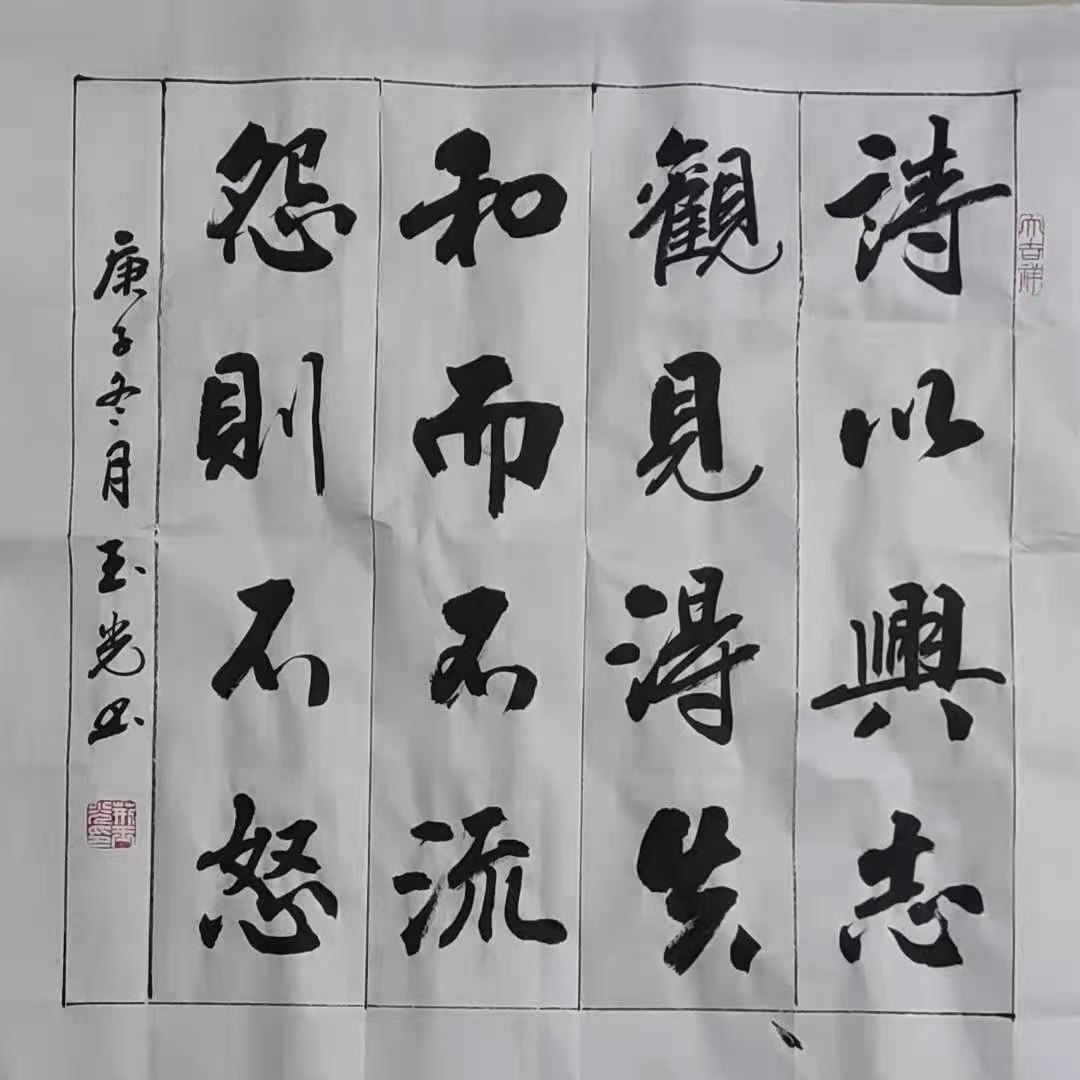 詩以興志
觀見得失
和而不流
怨則不怒
庚子冬月玉光书
大吉祥